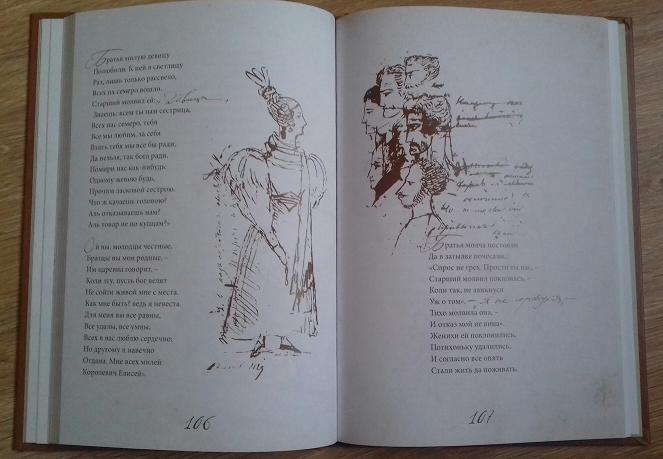 Братья милую девицу
Полюбили. К ней в светлицу
Раз, лишь только рассвело,
Всех их семеро вошло.
Старший молвил ей: «Девица,
Знаешь: всем ты нам сестрица,
Всех нас семеро, тебя
Все мы любим, за себя
Взять тебя мы все бы ради,
Да нельзя, так бога ради
Помири нас как-нибудь:
Одному женою будь,
Прочим ласковой сестрою.
Что ж качаешь головою?
Аль отказываешь нам?
Аль товар не по купцам?»
Ой вы, молодцы честные,
Братцы вы мои родные, –
Им царевна говорит, –
Коли лгу, пусть бог велит
Не сойти живой мне с места.
Как мне быть? ведь я невеста.
Для меня вы все равны,
Все удалы, все умны,
Всех я вас люблю сердечно;
Но другому я навечно
Отдана. Мне всех милей
Королевич Елисей».
1829
106
Братья молча постояли
Да в затылке почесали.
«Спрос не грех. Прости ты нас, –
Старший молвил поклонясь, –
Коли так, не заикнуся
Уж о том». – «Я не сержуся, –
Тихо молвила она, –
И отказ мой не вина».
Женихи ей поклонились,
Потихоньку удалились,
И согласно все опять
Стали жить да поживать.
107